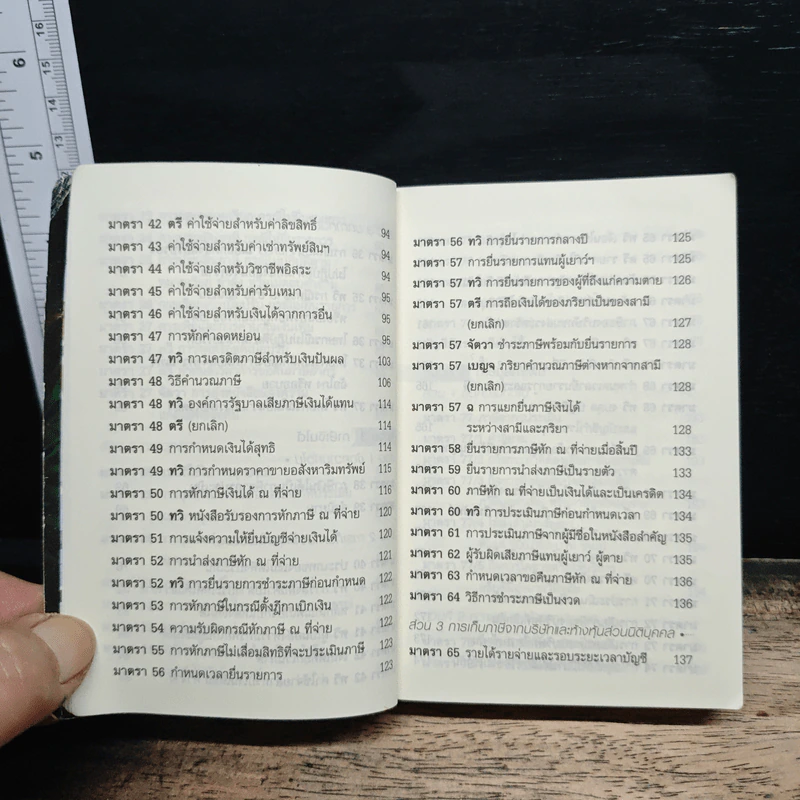 มาตรา 42 ตรี ค่าใช้จ่ายสำหรับค่าลิขสิทธิ์ 94
มาตรา 43 ค่าใช้จ่ายสำหรับค่าเช่าทรัพย์สินฯ 94
มาตรา 44 ค่าใช้จ่ายสำหรับวิชาชีพอิสระ 94
มาตรา 45 ค่าใช้จ่ายสำหรับค่ารับเหมา 95
มาตรา 46 ค่าใช้จ่ายสำหรับเงินได้จากการอื่น 95
มาตรา 47 การหักค่าลดหย่อน 95
มาตรา 47 ทวิ การเครดิตภาษีสำหรับเงินปันผล 103
มาตรา 48 วิธีคำนวณภาษี 106
มาตรา 48 ทวิ องค์การรัฐบาลเสียภาษีเงินได้แทน 114
มาตรา 48 ตรี (ยกเลิก) 114
มาตรา 49 การกำหนดเงินได้สุทธิ 114
มาตรา 49 ทวิ การกำหนดราคาขายอสังหาริมทรัพย์ 115
มาตรา 50 การหักภาษีเงินได้ ณ ที่จ่าย 116
มาตรา 50 ทวิ หนังสือรับรองการหักภาษี ณ ที่จ่าย 120
มาตรา 51 การแจ้งความให้ยื่นบัญชีจ่ายเงินได้ 120
มาตรา 52 การนำส่งภาษีหัก ณ ที่จ่าย 121
มาตรา 52 ทวิ การยื่นรายการชำระภาษีก่อนกำหนด 122
มาตรา 53 การหักภาษีในกรณีตั้งฎีกาเบิกเงิน 122
มาตรา 54 ความรับผิดกรณีหักภาษี ณ ที่จ่าย 122
มาตรา 55 การหักภาษีไม่เสื่อมสิทธิที่จะประเมินภาษี 123
มาตรา 56 กำหนดเวลายื่นรายการ 123
มาตรา 56 ทวิ การยื่นรายการกลางปี 125
มาตรา 57 การยื่นรายการแทนผู้เยาว์ฯ 125
มาตรา 57 ทวิ การยื่นรายการของผู้ที่ถึงแก่ความตาย 126
มาตรา 57 ตรี การถือเงินได้ของภริยาเป็นของสามี
(ยกเลิก) 127
มาตรา 57 จัตวา ชำระภาษีพร้อมกับยื่นรายการ 128
มาตรา 57 เบญจ ภริยาคำนวณภาษีต่างหากจากสามี
(ยกเลิก) 128
มาตรา 57 ฉ การแยกยื่นภาษีเงินได้
ระหว่างสามีและภริยา 128
มาตรา 58 ยื่นรายการภาษีหัก ณ ที่จ่ายเมื่อสิ้นปี 133
มาตรา 59 ยื่นรายการนำส่งภาษีเป็นรายตัว 133
มาตรา 60 ภาษีหัก ณ ที่จ่ายเป็นเงินได้และเป็นเครดิต 134
มาตรา 60 ทวิ การประเมินภาษีก่อนกำหนดเวลา 134
มาตรา 61 การประเมินภาษีจากผู้มีชื่อในหนังสือสำคัญ 135
มาตรา 62 ผู้รับผิดเสียภาษีแทนผู้เยาว์ ผู้ตาย 135
มาตรา 63 กำหนดเวลาขอคืนภาษีหัก ณ ที่จ่าย 136
มาตรา 64 วิธีการชำระภาษีเป็นงวด 136
ส่วน 3 การเก็บภาษีจากบริษัทและห้างหุ้นส่วนนิติบุคคล •
มาตรา 65 รายได้รายจ่ายและรอบระยะเวลาบัญชี 137